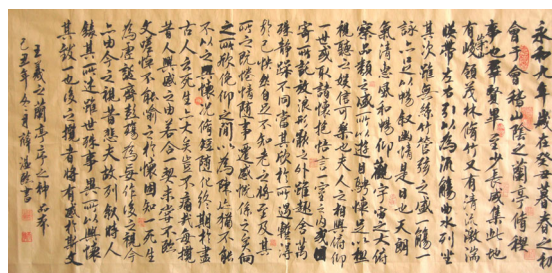 永和九年歲在癸丑暮春之初
會于會稽山陰之蘭亭脩禊
事也群賢畢至少長咸集此地
有崇山峻領茂林脩竹又有清流激湍
映帶左右引以為流觴曲水列坐
其次雖無絲竹管弦之盛一觴一
詠亦足以暢敘幽情是日也天朗
氣清惠風和暢仰觀宇宙之大俯
察品類之盛所以遊目騁懷足以極
視聽之娛信可樂也夫人之相與俯仰
一世或取諸懷抱悟言一室之內或因
寄所託放浪形骸之外雖趣舍萬
殊靜躁不同當其欣於所遇暫得
於己快然自足不知老之將至及其
所之既惓情隨事遷感慨係之矣向
之所欣俛仰之間以為陳迹猶不能
不以之興懷況脩短隨化終期於盡
古人云死生亦大矣豈不痛哉每攬
昔人興感之由若合一契未嘗不臨
文嗟悼不能喻之於懷固知一死生
為虛誕齊彭殤為妄作後之視今
亦由今之視昔悲夫故列敘時人
錄其所述雖世殊事異所以興懷
其致一也後之攬者將有感於斯文
王羲之蘭亭序之神品本
己丑年冬月薛書